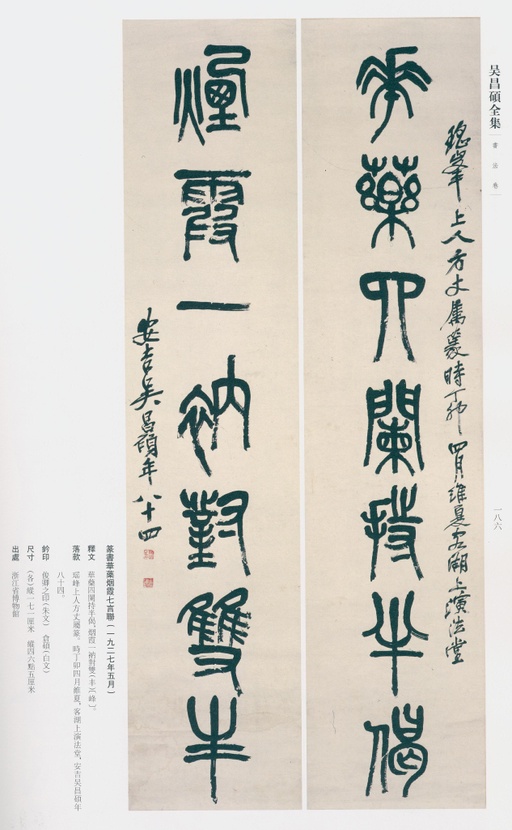 吴昌碩全集
書法卷
一八六
峯上人方丈屬篆時丁卯四月維夏客湖上演法堂
華藥四闌持半偈
煙霞一衲對雙丰
安吉吳昌碩年八十四
篆書華藥烟霞七言聯(一九二七年五月)
釋文 華藥四闌持半偈,烟霞一衲對雙(丰)(峰)。
落款 峰上人方丈屬篆。時丁卯四月維夏,客湖上演法堂,安吉吴昌碩年
八十四。
鈐印 俊卿之印(朱文) 倉碩(白文)
尺寸 (各)縱一七一厘米 橫四六點五厘米
出處 浙江省博物館